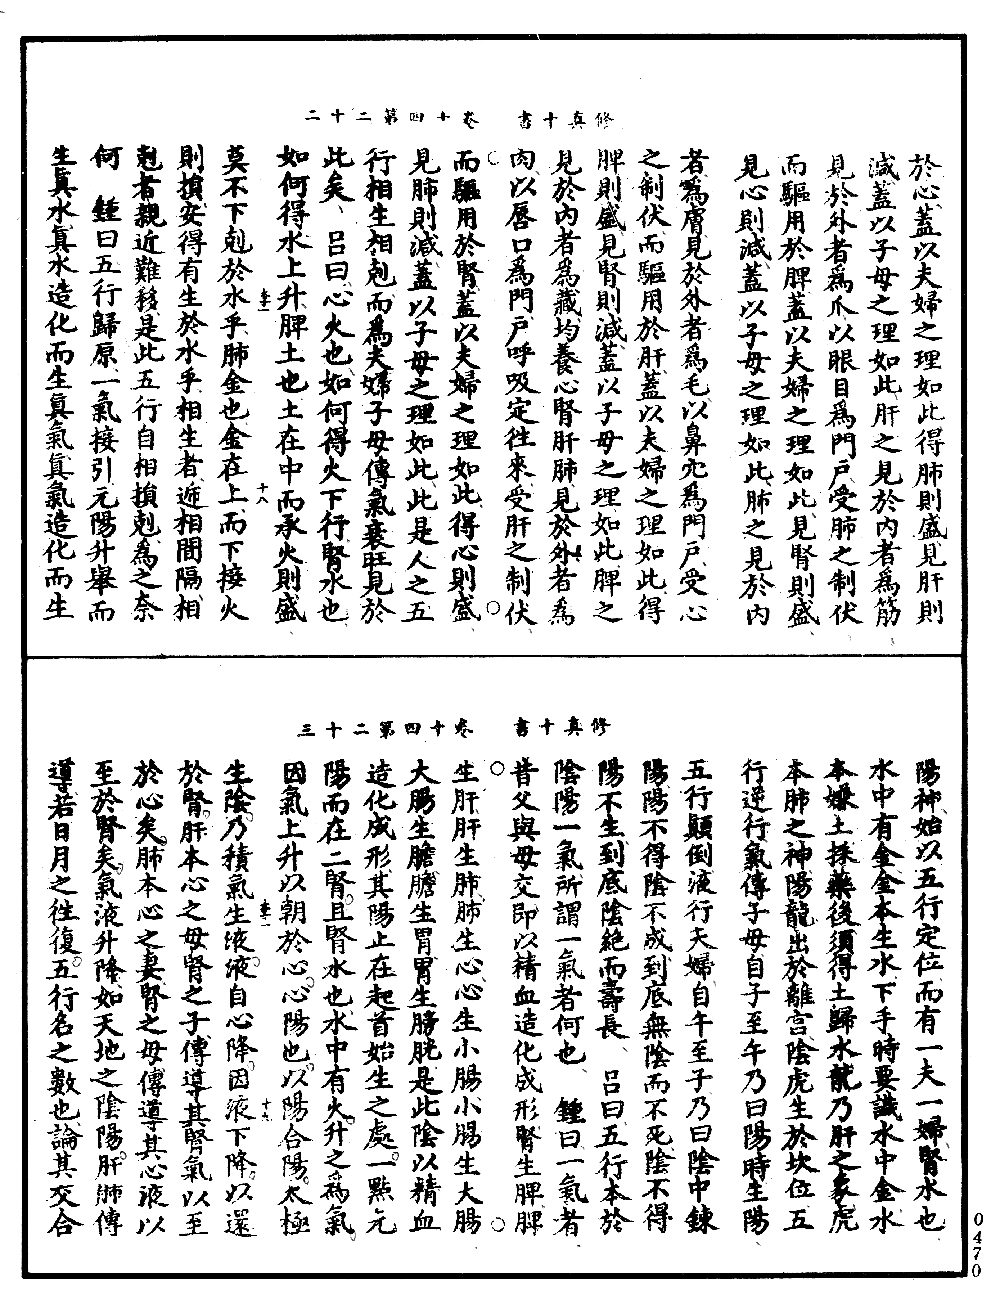 修真十書　卷十四第二十二
於心蓋以夫婦之理如此得肺則盛見肝則
減蓋以子母之理如此肝之見於內者爲筋
見於外者爲爪以眼目爲門戶受肺之制伏
而驅用於脾蓋以夫婦之理如此見腎則盛
見心則減蓋以子母之理如此肺之見於內
者爲膚見於外者爲毛以鼻穴爲門戶受心
之制伏而驅用於肝蓋以夫婦之理如此得
脾則盛見腎則減蓋以子母之理如此脾之
見於內者爲藏均養心腎肝肺見於外者爲
肉以唇口爲門戶呼吸定往來受肝之制伏
而驅用於腎蓋以夫婦之理如此得心則盛
見肺則減蓋以子母之理如此此是人之五
行相生相剋而爲夫婦子母傳氣衰旺見於
此矣呂曰心火也如何得火下行腎水也
如何得水上升脾土也土在中而承火則盛
莫不下剋於水乎肺金也金在上而下接火
則損安得有生於水乎相生者遞相間隔相
剋者親近難移是此五行自相損剋爲之奈
何　鍾曰五行歸原一氣接引元陽升舉而
生眞水眞水造化而生眞氣眞氣造化而生
修真十書　卷十四第二十三
陽神始以五行定位而有一夫一婦腎水也
水中有金金本生水下手時要識水中金水
本嫌土採藥後須得土歸水龍乃肝之象虎
本肺之神陽龍出於離宮陰虎生於坎位五
行逆行氣傳子母自子至午乃曰陽時生陽
五行顛倒液行夫婦自午至子乃曰陰中鍊
陽陽不得陰不成到底無陰而不死陰不得
陽不生到底陰絶而壽長　呂曰五行本於
陰陽一氣所謂一氣者何也　鍾曰一氣者
昔父與母交即以精血造化成形腎生脾脾
生肝肝生肺肺生心心生小腸小腸生大腸
大腸生膽膽生胃胃生膀胱是此陰以精血
造化成形其陽止在起首始生之處一點元
陽而在二腎且腎水也水中有火升之爲氣
因氣上升以朝於心心陽也以陽合陽太極
生陰乃積氣生液液自心降因液下降以還
於腎肝本心之母腎之子傳導其腎氣以至
於心矣肺本心之妻腎之母傳導其心液以
至於腎矣氣液升降如天地之陰陽肝肺傳
導若日月之往復五行名之數也論其交合
0470